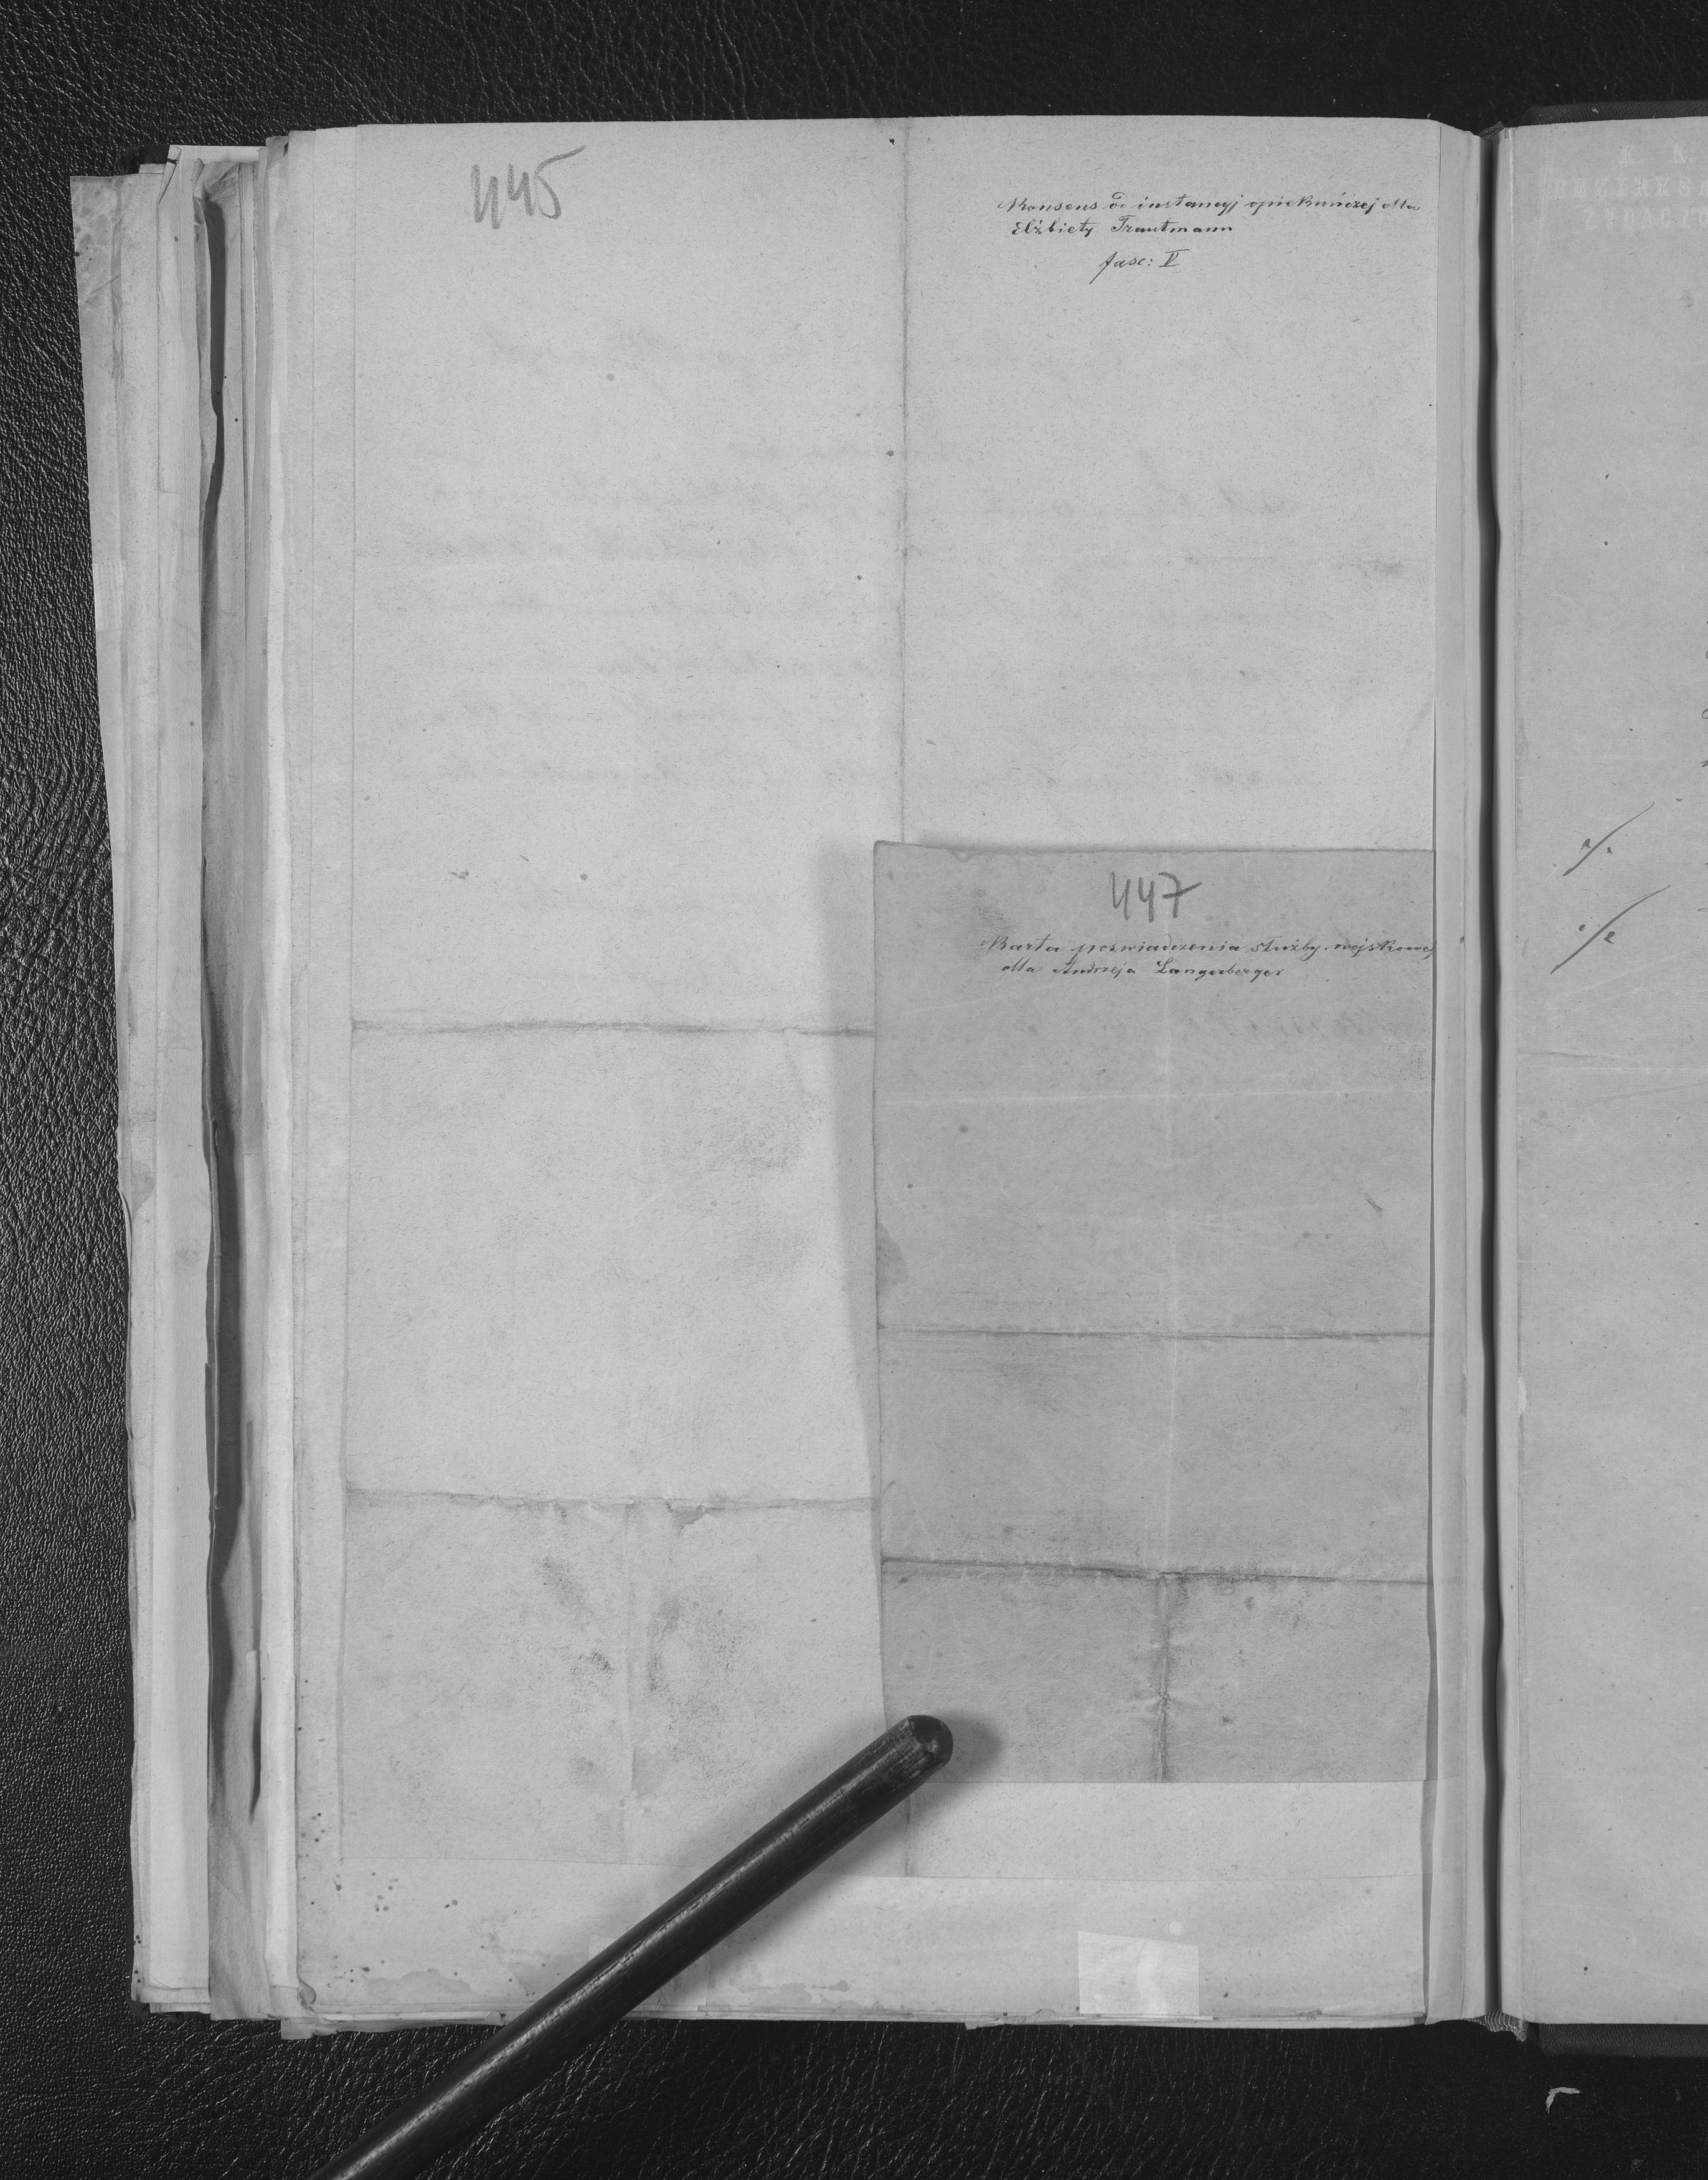 445
Konsens od instancyj opiekuńczej dla
Elżbiety Trautmann
fasc: V
447
Karta poświadczenia służby wojskowej
dla Andrzeja Langerberger